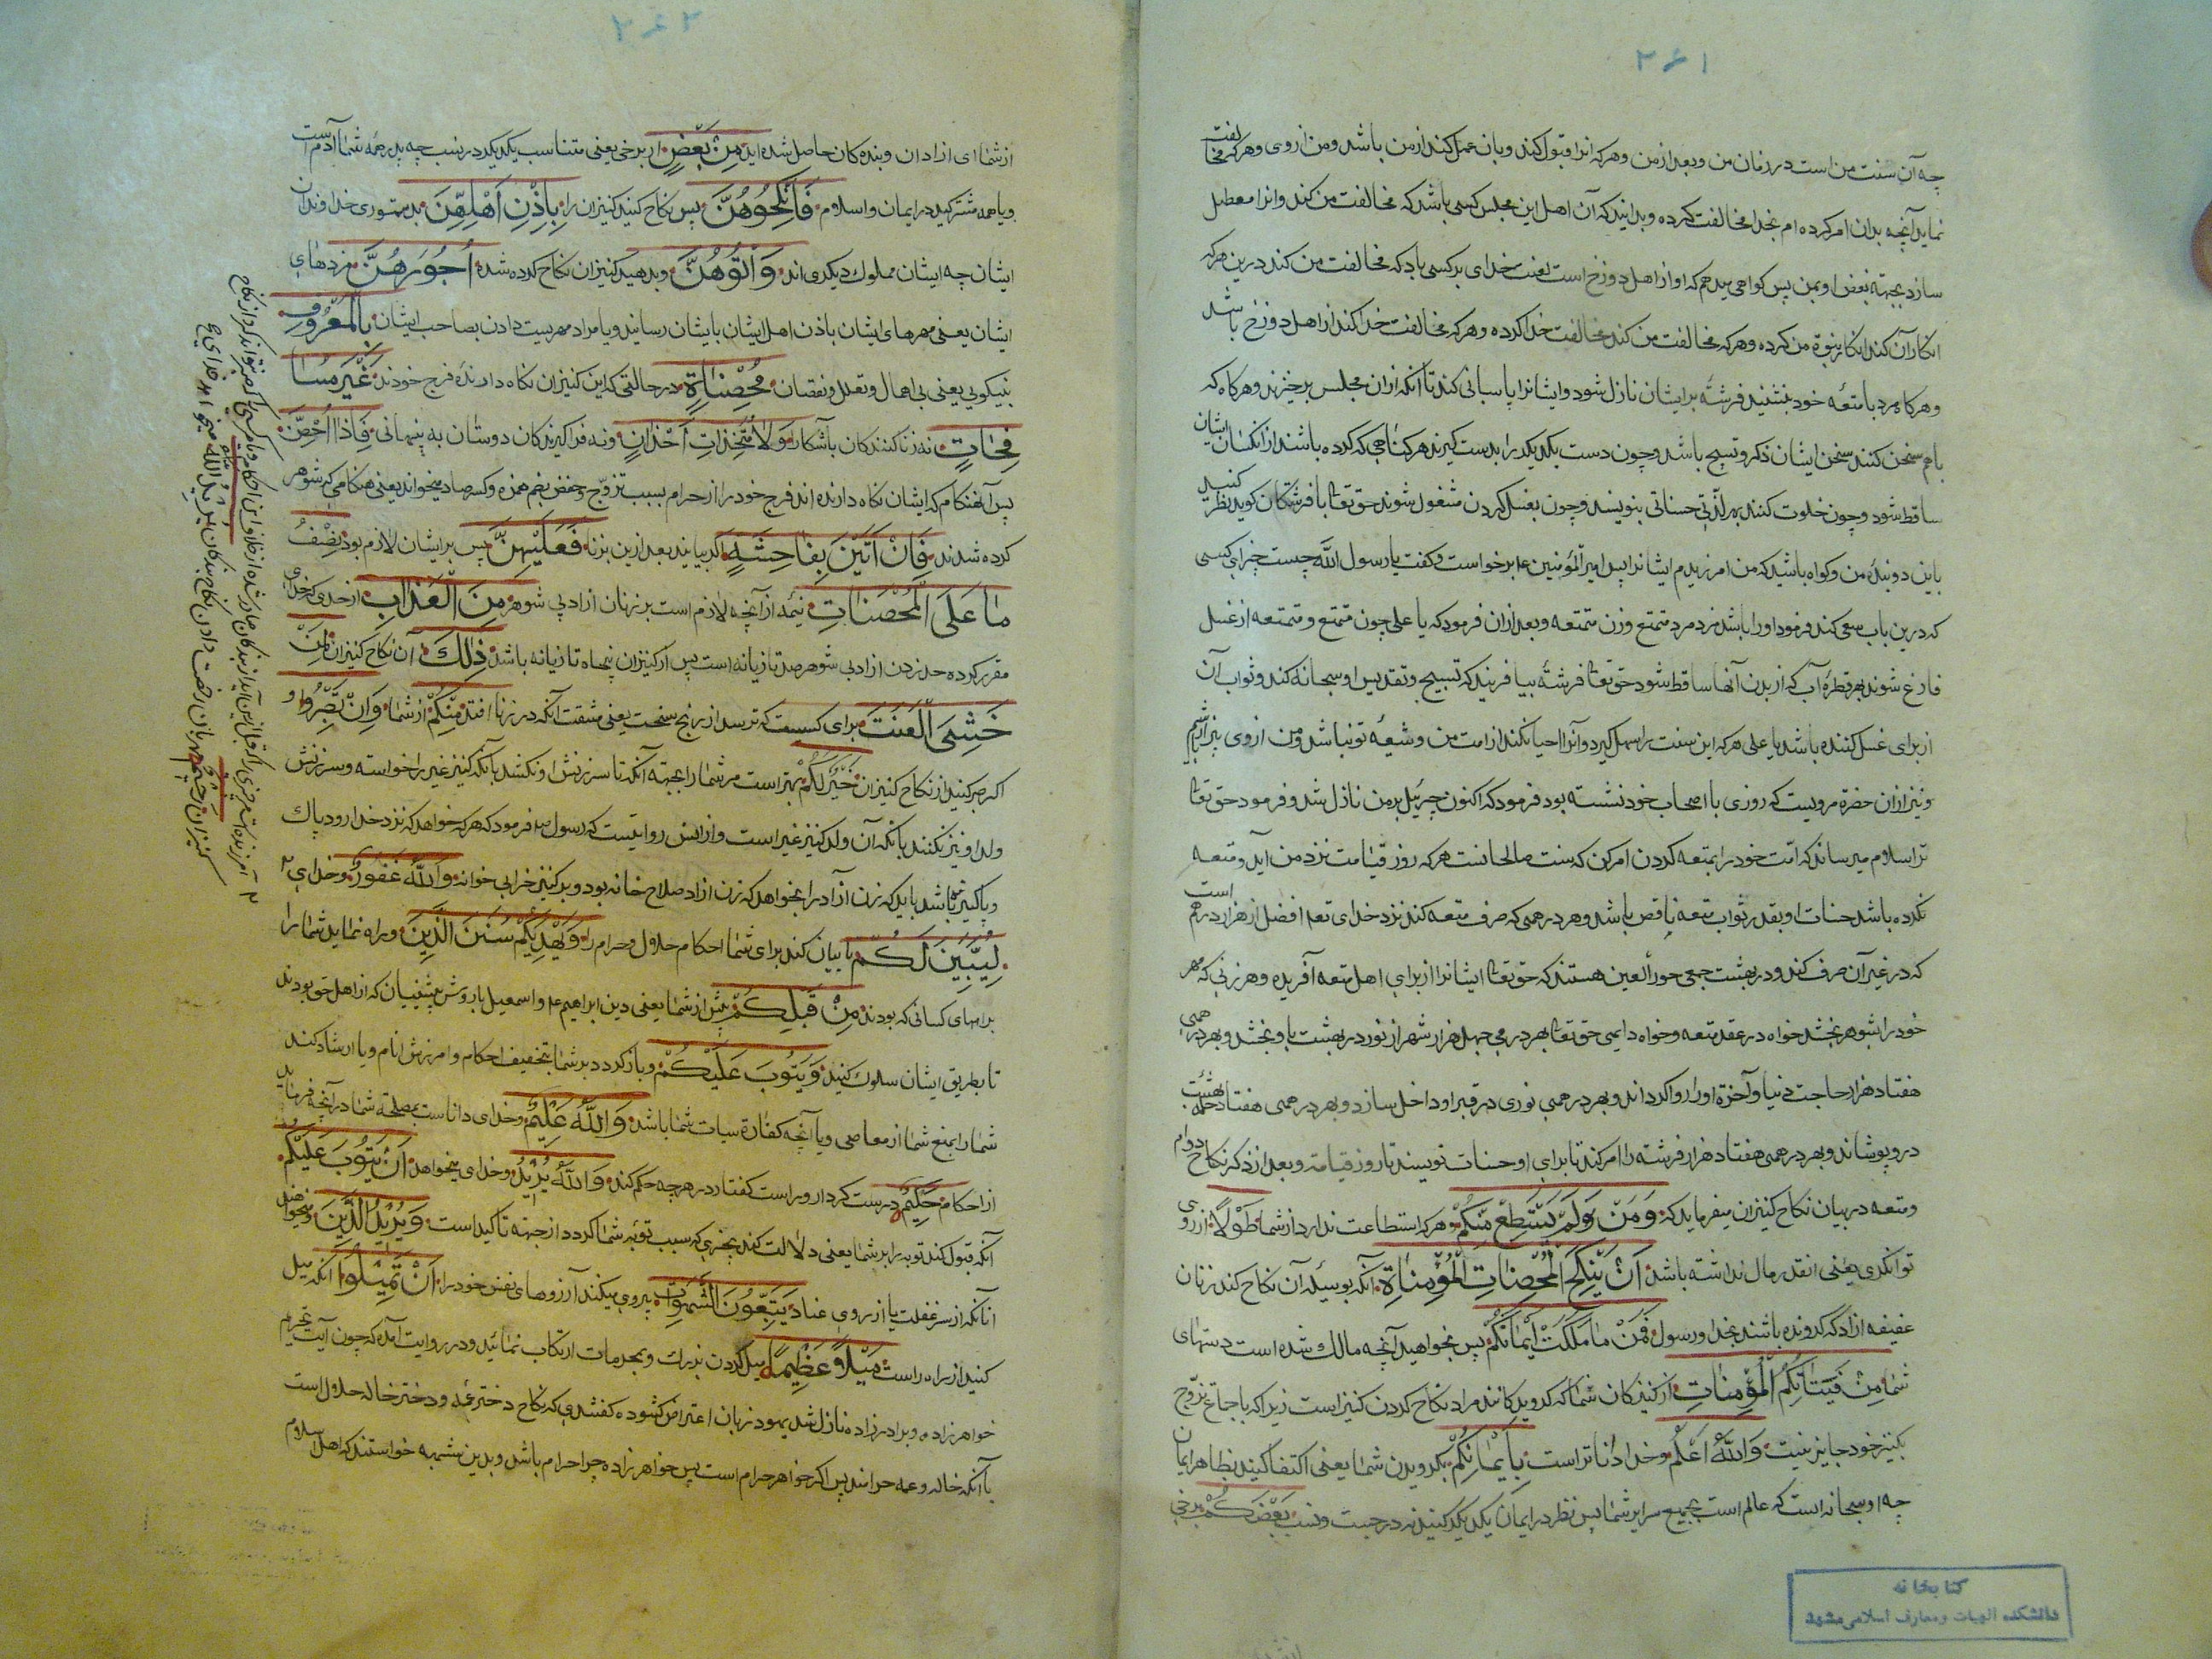 ۲۶۱
چه آن سنت من است در زمان من و بعد از من و هر که انرا قبول کند و بان عمل کند از من باشد و من از وی و هر که مخالفت
نماید آنچه بدان امر کرده ام بخدا مخالفت کرده و بدانید که آن اهل این مجلس کسی باشد که مخالفت من کند و انرا معطل
سازد بجهته بغض او بمن پس کواهی میدهم که او از اهل دوزخ است لعنت خدای بر کسی باد که مخالفت من کند درین هر که
انکار آن کند انکار نبوة من کرده و هر که مخالفت من کند مخالفت خدا کرده و هر که مخالفت خدا کند از اهل دوزخ باشد
و هر کاه مرد با متعه خود بنشیند فرشته بر ایشان نازل شود و ایشانرا پاسبانی کند تا آنکه از ان مجلس برخیزند و هر کاه که
باهم سخن کنند سخن ایشان ذکر و تسبیح باشد و چون دست یکدیکر را بدست کیرند هر کناهی که کرده باشند از انکشتان ایشان
ساقط شود و چون خلوت کنند بهر لذتی حسناتی بنویسد و چون بغسل کردن مشغول شوند حق تعالی با فرشتکان کوید نظر کنید
باین دو بندهٔ من و کواه باشید که من امرزیدم ایشانرا پس امیر المؤمنین ع برخواست و کفت یا رسول الله چیست جزای کسی
که درین باب سعی کند فرمود او را باشد مزد مرد متمتع و زن متمتعه و بعد از ان فرمود که یا علی چون متمتع و متمتعه از غسل
فارغ شوند بهر قطرهٔ آب که از بدن آنها ساقط شود حق تعالی فرشتهٔ بیافریند که تسبیح و تقدیس او سبحانه کند و ثواب آن
از برای غسل کننده باشد یا علی هر که این سنت را سهل کیرد و آنرا احیا نکند از امت من و شیعهٔ تو نباشد و من از وی بیزار باشم
و نیز از ان حضرة مرویست که روزی با اصحاب خود نشسته بود فرمود که اکنون جبرئیل بر من نازل شد و فرمود حق تعالی
ترا سلام میرساند که امّت خود را بمتعه کردن امر کن که سنت صالحانست هر که روز قیامت نزد من آید و متعه
نکرده باشد حسنات او بقدر ثواب متعه ناقص باشد و هر درهمی که صرف متعه کند نزد خدای تع افضل از هزار درهم است
که در غیر آن صرف کند و در بهشت جمعی حور العین هستند که حق تعالی ایشانرا از برای اهل متعه آفریده و هر زنی که مهر
خود را بشوهر بخشد خواه در عقد متعه و خواه دایمی حق تعالی بهر درهمی چهل هزار شهر از نور در بهشت باو بخشد و بهر درهمی
هفتاد هزار حاجت دنیا و آخرة او را روا کرداند و بهر درهمی نوری در قبر او داخل سازد و بهر درهمی هفتاد حلهٔ بهشت
درو پوشاند و بهر درهمی هفتاد هزار فرشته را امر کند تا برای او حسنات نویسند تا روز قیامة و بعد از ذکر نکاح دوام
و متعه در بیان نکاح کنیزان میفرماید که وَمَنْ وَلَمْ یَسْتَطِعْ مِنْکُمْ هر که استطاعت ندارد از شما طَوْلًا از روی
توانکری یعنی انقدر مال نداشته باشد اَنْ یَنْکِحَ الْمُحْصَنَاتِ الْمُؤْمِنَاةِ آنکه بوسیلهٔ آن نکاح کند زنان
عفیفه ازاد که کرونده باشند بخدا و رسول فَمِنْ مَا مَلَکَتْ اَیْمَانُکُمْ پس بخواهید آنچه مالک شده است دستهای
شما مِنْ فَتَیَاتِکُمُ الْمُؤْمِنَاتِ از کنیزکان شما که کرویدکانند مراد نکاح کردن کنیز است زیرا که باجماع تزوج
بکنیز خود جایز نیست وَاللّٰهُ اَعْلَمُ و خدا داناتر است بِاِیْمَانِکُمْ بکرویدن شما یعنی اکتفا کنید بظاهر ایمان
چه او سبحانه است که عالم است بجمیع سرایر شما پس نظر در ایمان یکدیکر کنید نه در حسب و نسب بَعْضُکُمْ برخی
کتابخانه
دانشکده الهیات و معارف اسلامی مشهد
۲۶۲
از شما ای ازادان و بنده کان حاصل شده اید مِنْ بَعْضٍ از برخی یعنی متناسب یکدیکرید در نسب چه پدر همهٔ شما آدم است
و یا همه مشترکید در ایمان و اسلام فَانْکِحُوهُنَّ پس نکاح کنید کنیزان را بِاِذْنِ اَهْلِهِنَّ بدستوری خداوندان
ایشان چه ایشان مملوک دیکری اند وَاٰتُوهُنَّ و بدهید کنیزان نکاح کرده شده اُجُورَهُنَّ مزدهای
ایشان یعنی مهرهای ایشان باذن اهل ایشان بایشان رسانید و یا مراد مهریست دادن بصاحب ایشان بِالْمَعْرُوفِ
بنیکویی یعنی بی اهمال و تعلل و نقصان مُحْصَنَاةٍ در حالتی که این کنیزان نکاه دارندهٔ فرج خودند غَیْرَ مُسَا
فِحَاتٍ نه زنا کنندکان باشکارا وَلَا مُتَّخِذَاتِ اَخْدَانٍ و نه فراکیرندکان دوستان به پنهانی فَاِذَا اُحْصِنَّ
پس آنهنکام که ایشان نکاه دارنده اند فرج خود را از حرام بسبب تزوّج و حفص بضم همزه و کسر صاد میخواند یعنی هنکامی که شوهر
کرده شدند فَاِنْ اَتَیْنَ بِفَاحِشَةٍ اکر بیایند بعد ازین بزنا فَعَلَیْهِنَّ پس بر ایشان لازم بود نِصْفُ
مَا عَلَی الْمُحْصَنَاتِ نیمهٔ از آنچه لازم است بر زنان ازاد بی شوهر مِنَ الْعَذَابِ از حدی که خدای
مقرر کرده حد زدن ازاد بی شوهر صد تازیانه است پس از کنیزان پنجاه تازیانه باشد ذٰلِکَ آن نکاح کنیزان لِمَنْ
خَشِیَ الْعَنَتَ برای کسیست که ترسد از رنج سخت یعنی مشقت آنکه در زنا افتد مِنْکُمْ از شما وَاِنْ تَصْبِرُوا و
اکر صبر کنید از نکاح کنیزان خَیْرٌ لَکُمْ بهتر است مر شما را بجهته آنکه تا سرزنش او نکشد بآنکه کنیز غیر را خواسته و سرزنش
ولد او نیز نکنند بانکه آن ولد کنیز غیر است و از انس روایتست که رسول ص فرمود که هر که خواهد که نزد خدا رود پاک
و پاکیزه باشد باید که زن آزاد را بخواهد که زن ازاد صلاح خانه بود و بد کنیز خرابی خوانه وَاللّٰهُ غَفُورٌ و خدای
لِیُبَیِّنَ لَکُمْ تا بیان کند برای شما احکام حلال و حرام را وَیَهْدِیَکُمْ سُنَنَ الَّذِینَ و راه نماید شما را
براههای کسانی که بودند مِنْ قَبْلِکُمْ پیش از شما یعنی دین ابراهیم ع و اسمعیل با روش پیشینیان که از اهل حق بودند
تا بطریق ایشان سلوک کنید وَیَتُوبَ عَلَیْکُمْ و باز کردد بر شما بتخفیف احکام و امرزش اثام و یا ارشاد کند
شما را بمنع شما از معاصی و یا آنچه کفارة سیات شما باشد وَاللّٰهُ عَلِیمٌ و خدای داناست بمصلحة شما در آنچه فرماید
از احکام حَکِیمٌ درست کردار و راست کفتار در هر چه حکم کند وَاللّٰهُ یُرِیدُ و خدای میخواهد اَنْ یَتُوبَ عَلَیْکُمْ
آنکه قبول کند توبه را بر شما یعنی دلالت کند بچیزی که سبب توبهٔ شما کردد از جهته تاکید است وَیُرِیدُ الَّذِینَ و میخواهند
انانکه از سر غفلت یا از روی عناد یَتَّبِعُونَ الشَّهَوَاتِ پیروی میکنند آرزوهای نفس خود را اَنْ تَمِیلُوا آنکه میل
کنید از راه راست مَیْلًا عَظِیمًا میل کردن بزرک و بمحرمات ارتکاب نمائید و در روایت آمده که چون آیت تحریم
خواهر زاده و برادر زاده نازل شد یهود زبان اعتراض کشوده کفتندی که نکاح دختر عمه و دختر خاله حلال است
با آنکه خاله و عمه حرامند پس اکر خواهر حرام است پس خواهر زاده چرا حرام باشد و بدین شبهه خواستند که اهل اسلام
آمرزنده است هر چیزی را که قبل ازین آید از بندکان صادر شده از خلاف این احکام و یا مر کسی را که صبر نتواند کرد از نکاح
کنیزان رَحِیمٌ مهربان در رخصت دادن نکاح بندکان یُرِیدُ اللّٰهُ میخواهد خدای